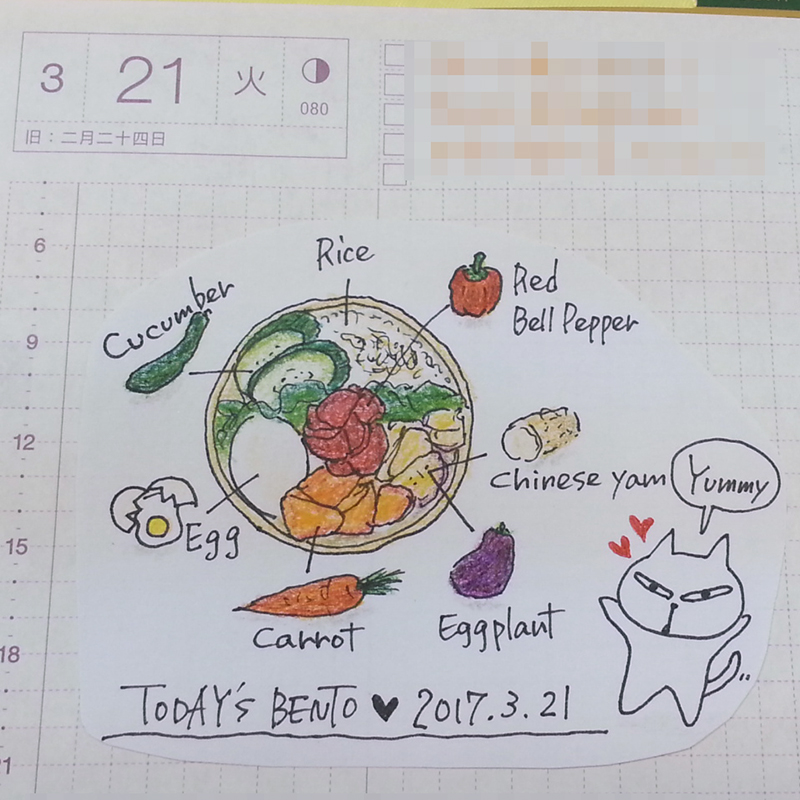 3 21 火
080
旧：二月二十四日
6
9
12
15
18
21
Rice
Red
Bell Pepper
Cucumber
Chinese yam
Yummy
Egg
Carrot
Eggplant
TODAY'S BENTO ♥ 2017.3.21